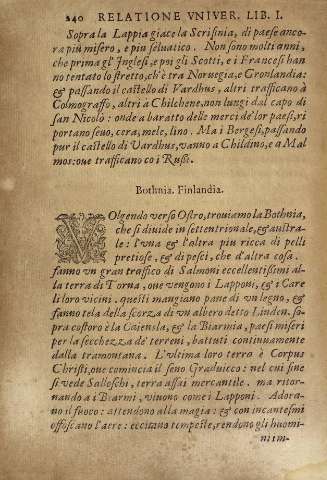 240 RELATIONE VNIVER. LIB. I.
Sopra la Lappia giace la Scrisinia, di paese anco
ra più misero, e piu seluatico. Non sono molti anni,
che prima gl'Inglesi, e poi gli Scotti, e i Francesi han
no tentato lo stretto, ch'è tra Noruegia, e Gronlandia:
& passando il castello di Vardhus, altri trafficano à
Colmograffo, altri à Chilchene, non lungi dal capo di
san Nicolo: onde a baratto delle merci de' lor paesi, ri
portano seuo, cera, mele, lino. Ma i Bergesi, passando
pur il castello di Vardhus, vanno a Childino, e a Mal
mos: oue trafficano co i Russi.
Bothnia. Finlandia.
VOlgendo verso Ostro, trouiamo la Bothnia,
che si diuide in settentrionale, & austra-
le: l'vna & l'altra piu ricca di pelli
pretiose, & di pesci, che d'altra cosa.
fanno vn gran traffico di Salmoni eccellentissimi al
la terra di Torna, oue vengono i Lapponi, & i Care
li loro vicini. questi mangiano pane di vn legno, &
fanno tela della scorza di vn albero detto Linden. so
pra costoro è la Caiensla, & la Biarnia, paesi miseri
per la secchezza de' terreni, battuti continuamente
dalla tramontana. L'vltima loro terro è Corpus
Christi, oue comincia il seno Graduicco: nel cui sine
si vede Salloschi, terra assai mercantile. ma ritor-
nando a i Biarmi, viuono come i Lapponi. Adora-
no il fuoco: attendono alla magia: & con incantesmi
offoscano l'aere: eccitano tempeste, rendono gli huomi-
nim-